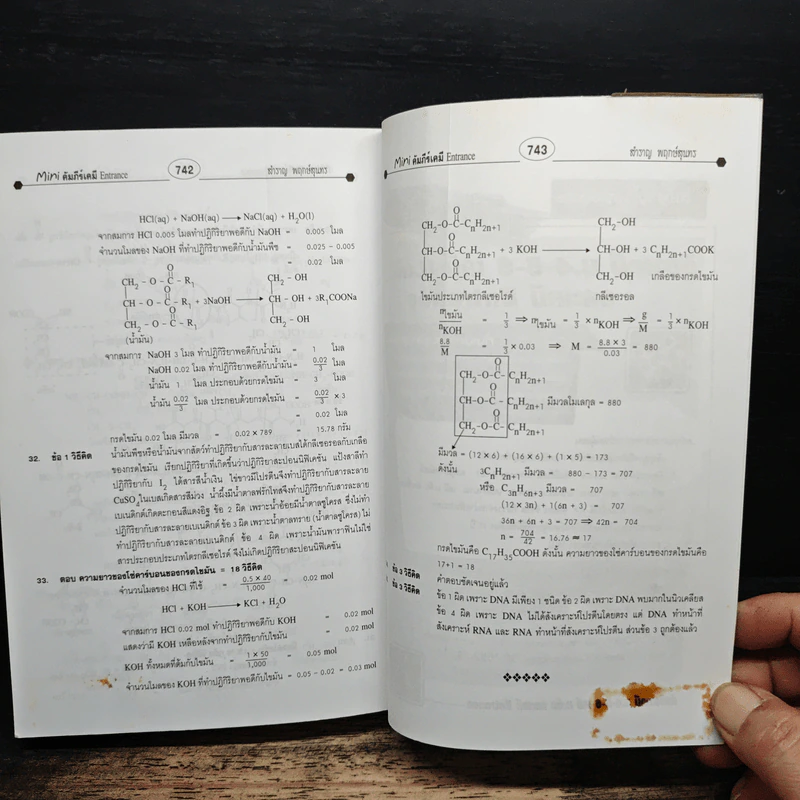 Mini คัมภีร์เคมี Entrance 742 สำราญ พฤกษ์สุนทร
HCl(aq) + NaOH(aq) ⟶ NaCl(aq) + H₂O(l)
จากสมการ HCl 0.005 โมลทำปฏิกิริยาพอดีกับ NaOH = 0.005 โมล
จำนวนโมลของ NaOH ที่ทำปฏิกิริยาพอดีกับน้ำมันพืช = 0.025 - 0.005
= 0.02 โมล
O
CH₂ - O - C - R₁ CH₂ - OH
O
CH - O - C - R₁ + 3NaOH ⟶ CH - OH + 3R₁COONa
O
CH₂ - O - C - R₁ CH₂ - OH
(น้ำมัน)
จากสมการ NaOH 3 โมล ทำปฏิกิริยาพอดีกับน้ำมัน = 1 โมล
NaOH 0.02 โมล ทำปฏิกิริยาพอดีกับน้ำมัน = 0.02/3 โมล
น้ำมัน 1 โมล ประกอบด้วยกรดไขมัน = 3 โมล
น้ำมัน 0.02/3 โมล ประกอบด้วยกรดไขมัน = 0.02/3 × 3
= 0.02 โมล
กรดไขมัน 0.02 โมล มีมวล = 0.02 × 789 = 15.78 กรัม
32. ข้อ 1 วิธีคิด น้ำมันพืชหรือน้ำมันจากสัตว์ทำปฏิกิริยากับสารละลายเบสได้กลีเซอรอลกับเกลือ
ของกรดไขมัน เรียกปฏิกิริยาที่เกิดขึ้นว่าปฏิกิริยาสะปอนนิฟิเคชัน แป้งสาลีทำ
ปฏิกิริยากับ I₂ ได้สารสีน้ำเงิน ไข่ขาวมีโปรตีนจึงทำปฏิกิริยากับสารละลาย
CuSO₄ ในเบสเกิดสารสีม่วง น้ำผึ้งมีน้ำตาลฟรักโทสจึงทำปฏิกิริยากับสารละลาย
เบเนดิกต์เกิดตะกอนสีแดงอิฐ ข้อ 2 ผิด เพราะน้ำอ้อยมีน้ำตาลซูโครส ซึ่งไม่ทำ
ปฏิกิริยากับสารละลายเบเนดิกต์ ข้อ 3 ผิด เพราะน้ำตาลทราย (น้ำตาลซูโครส) ไม่
ทำปฏิกิริยากับสารละลายเบเนดิกต์ ข้อ 4 ผิด เพราะน้ำมันพาราฟินไม่ใช่
สารประกอบประเภทไตรกลีเซอไรด์ จึงไม่เกิดปฏิกิริยาสะปอนนิฟิเคชัน
33. ตอบ ความยาวของโซ่คาร์บอนของกรดไขมัน = 18 วิธีคิด
จำนวนโมลของ HCl ที่ใช้ = 0.5 × 40/1,000 = 0.02 mol
HCl + KOH ⟶ KCl + H₂O
จากสมการ HCl 0.02 mol ทำปฏิกิริยาพอดีกับ KOH = 0.02 mol
แสดงว่ามี KOH เหลือหลังจากทำปฏิกิริยากับไขมัน = 0.02 mol
KOH ทั้งหมดที่ต้มกับไขมัน = 1 × 50/1,000 = 0.05 mol
จำนวนโมลของ KOH ที่ทำปฏิกิริยาพอดีกับไขมัน = 0.05 - 0.02 = 0.03 mol
Mini คัมภีร์เคมี Entrance 743 สำราญ พฤกษ์สุนทร
O
CH₂-O-C-CₙH₂ₙ₊₁ CH₂-OH
O
CH-O-C-CₙH₂ₙ₊₁ + 3 KOH ⟶ CH-OH + 3 CₙH₂ₙ₊₁COOK
O
CH₂-O-C-CₙH₂ₙ₊₁ CH₂-OH เกลือของกรดไขมัน
ไขมันประเภทไตรกลีเซอไรด์ กลีเซอรอล
nไขมัน/nKOH = 1/3 ⇒ nไขมัน = 1/3 × nKOH ⇒ g/M = 1/3 × nKOH
8.8/M = 1/3 × 0.03 ⇒ M = 8.8 × 3/0.03 = 880
O
CH₂-O-C-CₙH₂ₙ₊₁
O
CH-O-C-CₙH₂ₙ₊₁ มีมวลโมเลกุล = 880
O
CH₂-O-C-CₙH₂ₙ₊₁
มีมวล = (12 × 6) + (16 × 6) + (1 × 5) = 173
ดังนั้น 3CₙH₂ₙ₊₁ มีมวล = 880 - 173 = 707
หรือ C₃ₙH₆ₙ₊₃ มีมวล = 707
(12 × 3n) + 1(6n + 3) = 707
36n + 6n + 3 = 707 ⇒ 42n = 704
n = 704/42 = 16.76 ≈ 17
กรดไขมันคือ C₁₇H₃₅COOH ดังนั้น ความยาวของโซ่คาร์บอนของกรดไขมันคือ
17+1 = 18
ข้อ 3 วิธีคิด คำตอบชัดเจนอยู่แล้ว
ข้อ 3 วิธีคิด ข้อ 1 ผิด เพราะ DNA มีเพียง 1 ชนิด ข้อ 2 ผิด เพราะ DNA พบมากในนิวเคลียส
ข้อ 4 ผิด เพราะ DNA ไม่ได้สังเคราะห์โปรตีนโดยตรง แต่ DNA ทำหน้าที่
สังเคราะห์ RNA และ RNA ทำหน้าที่สังเคราะห์โปรตีน ส่วนข้อ 3 ถูกต้องแล้ว
❖❖❖❖❖